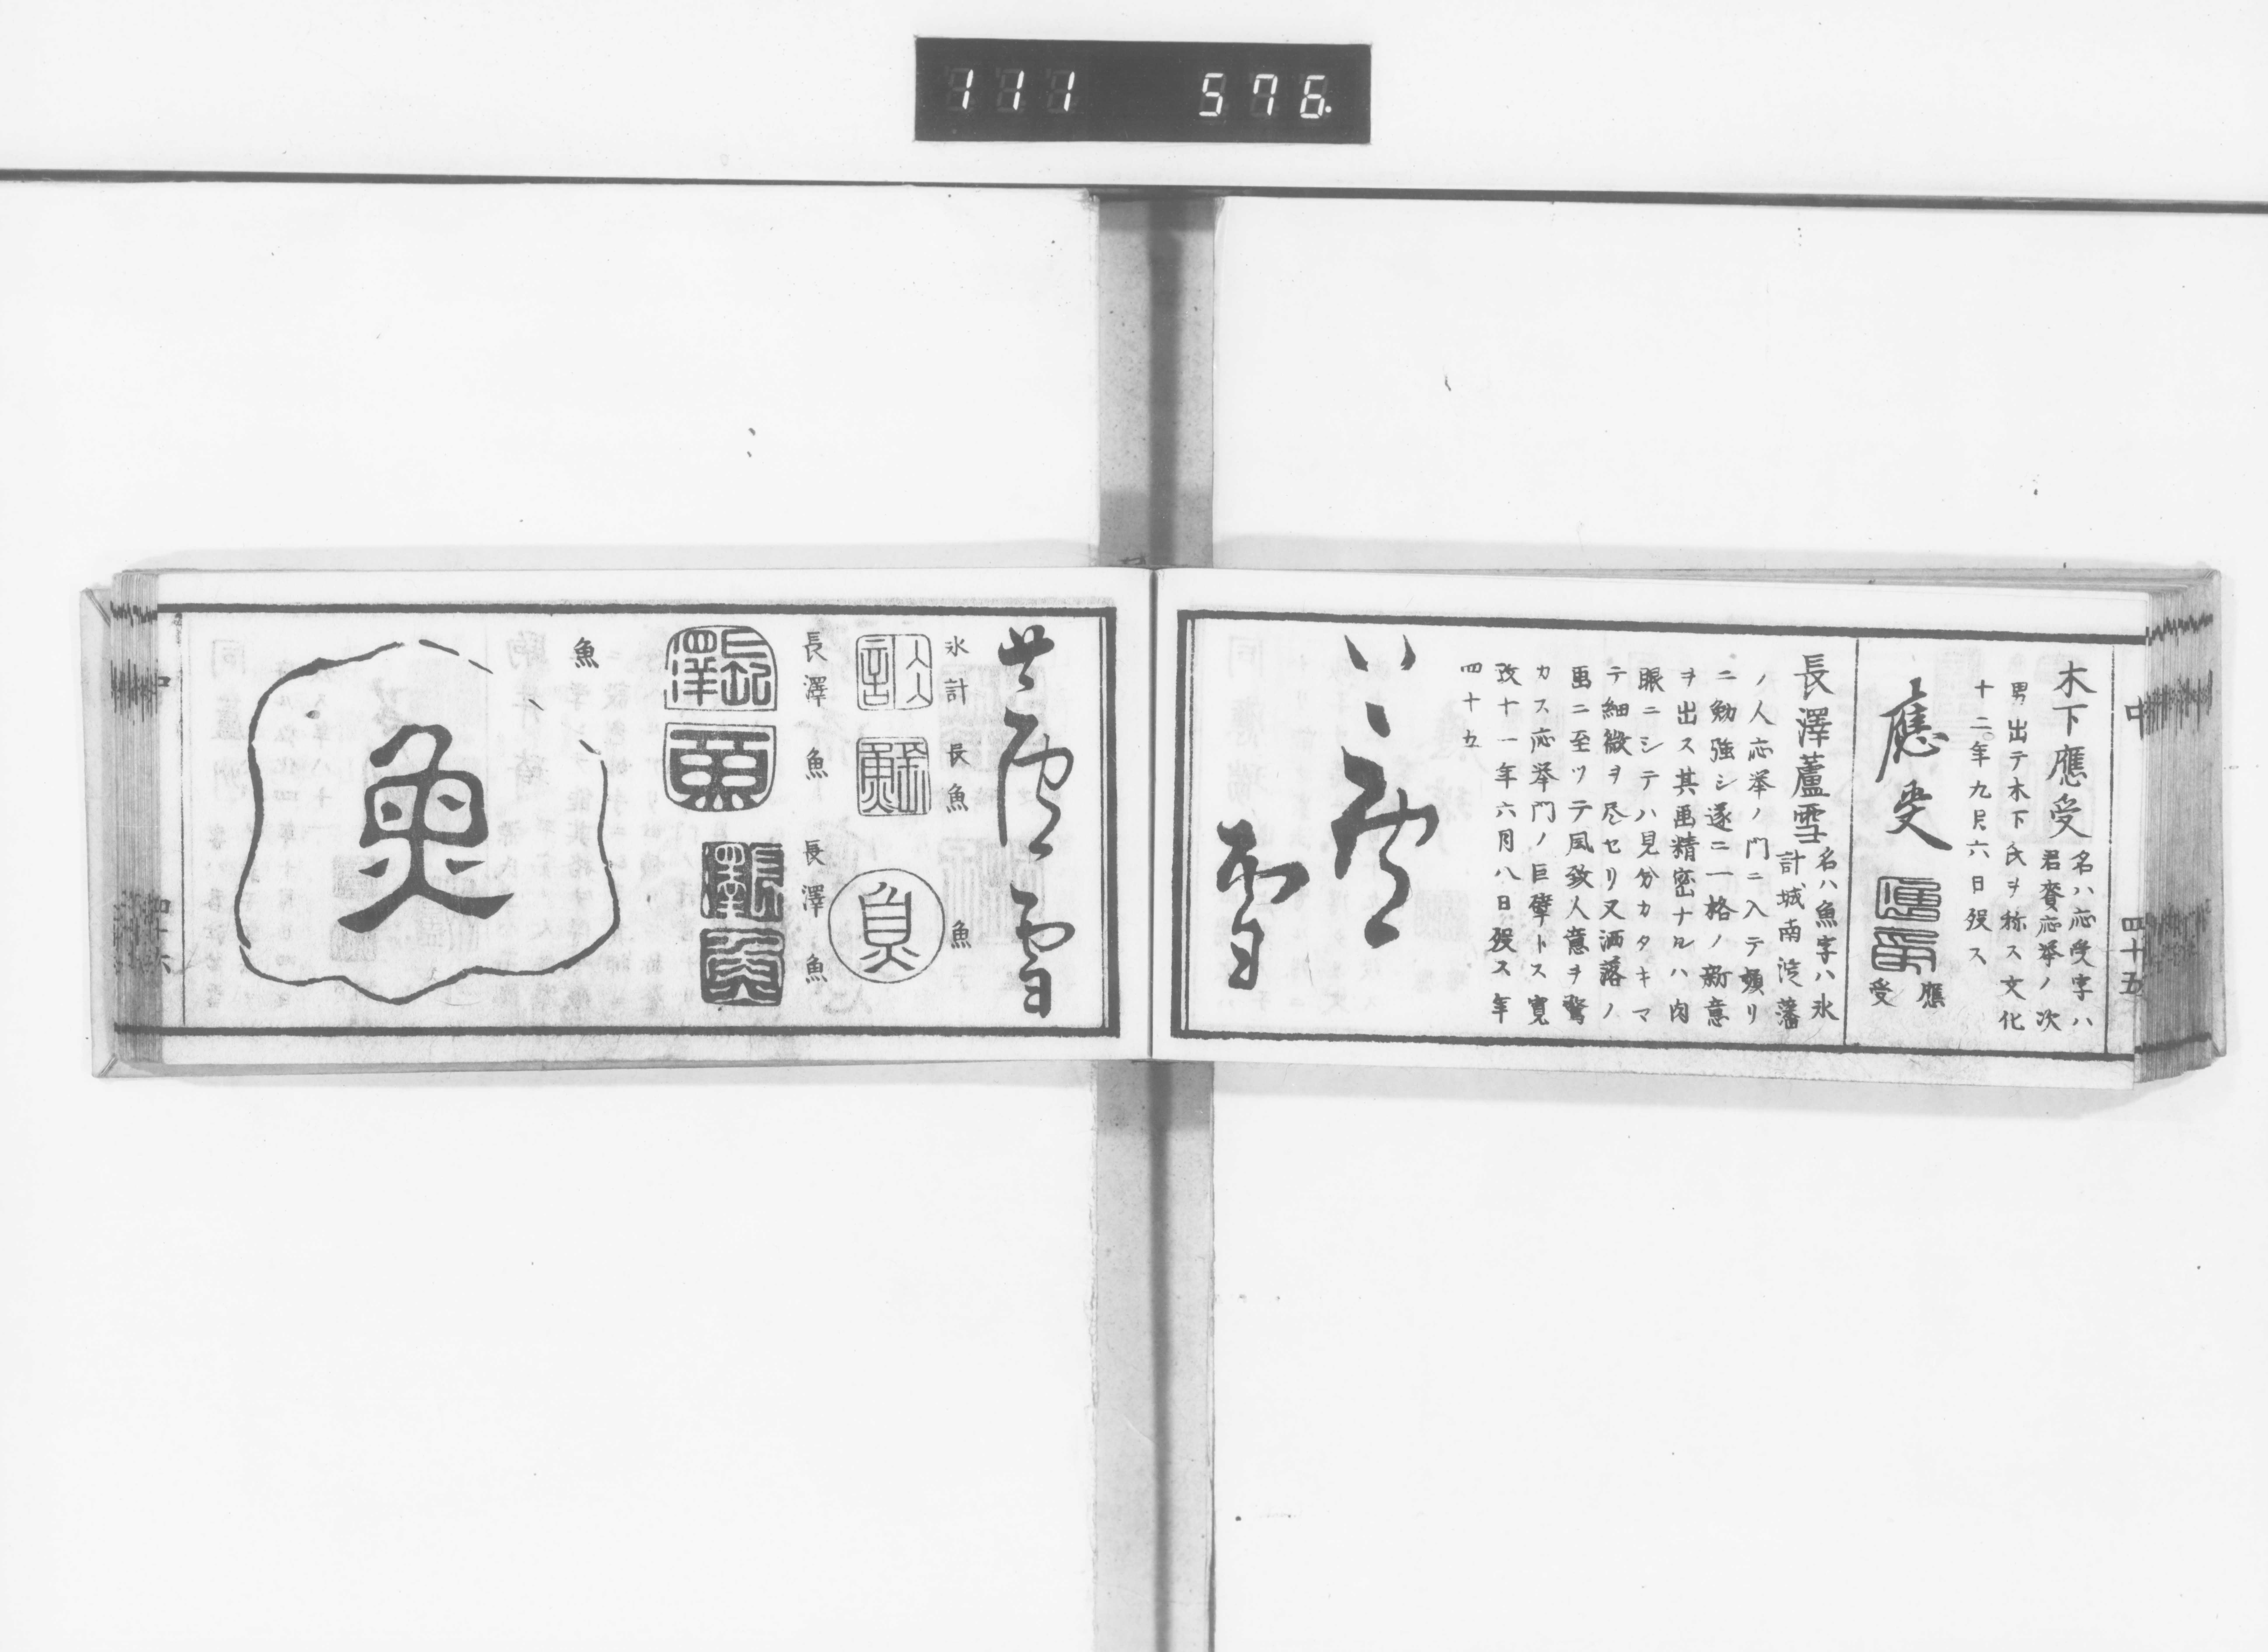 111 576.
中 四十五
木下應受 名ハ応受字ハ
君賚応挙ノ次
男出テ木下氏ヲ称ス文化
十二年九月六日歿ス
應受
應
受
長澤蘆雪 名ハ魚字ハ氷
計城南淀藩
ノ人応挙ノ門ニ入テ頻リ
ニ勉強シ遂ニ一格ノ新意
ヲ出ス其画精密ナルハ肉
眼ニシテハ見分カタキマ
テ細微ヲ尽セリ又洒落ノ
画ニ至ツテ風致人意ヲ驚
カス応挙門ノ巨擘トス寛
政十一年六月八日歿ス年
四十五
蘆
雪
蘆雪
氷計 長魚 魚
長澤 魚 長澤 魚
魚
魚